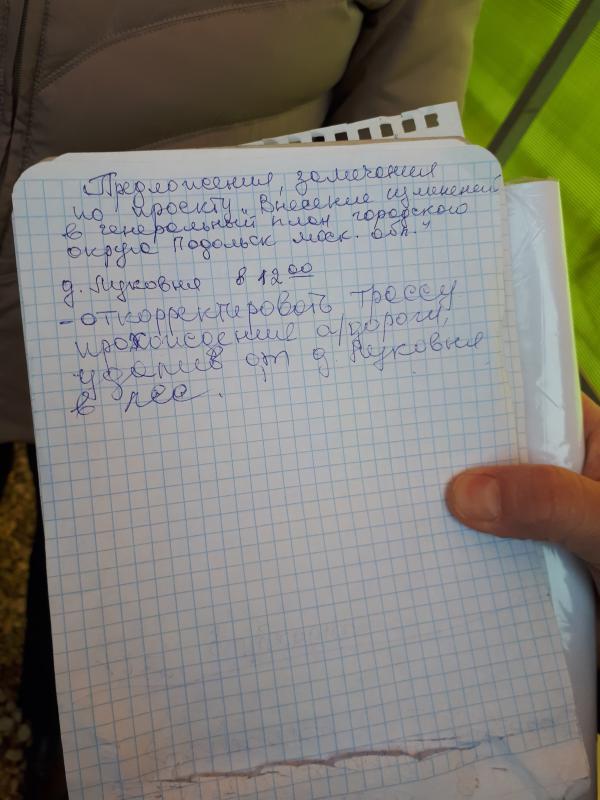 Предложения, замечания
по проекту „Внесение изменений
в генеральный план городского
округа Подольск моск. обл."
д. Луковня в 12 00
- откорректировать трассу
прохождение а/дороги,
удалив от д. Луковня
в лес.